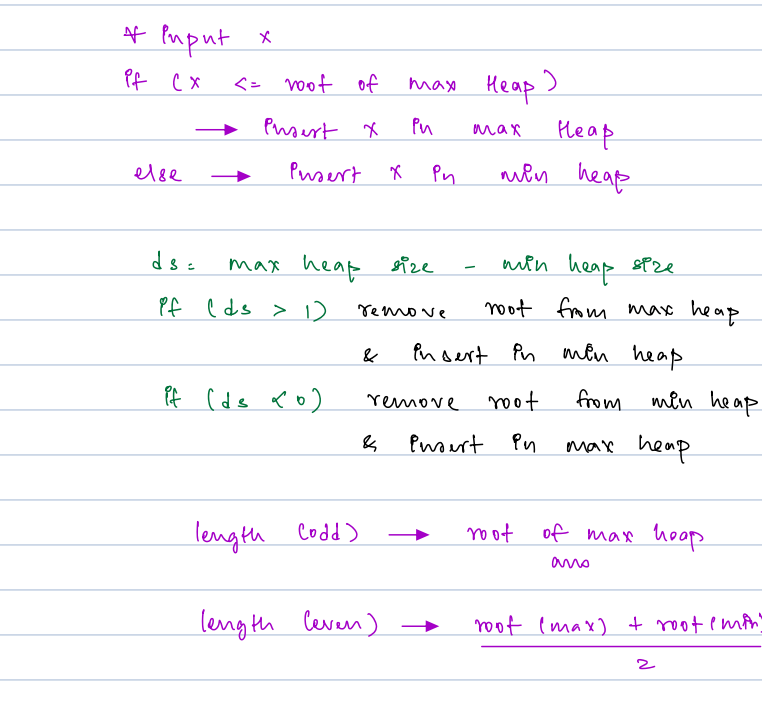 ∀ input x
if (x <= root of max Heap)
→ insert x in max Heap
else → insert x in min heap
ds = max heap size - min heap size
if (ds > 1) remove root from max heap
& insert in min heap
if (ds < 0) remove root from min heap
& insert in max heap
length (odd) → root of max heap
ans
length (even) → root (max) + root (min)
2